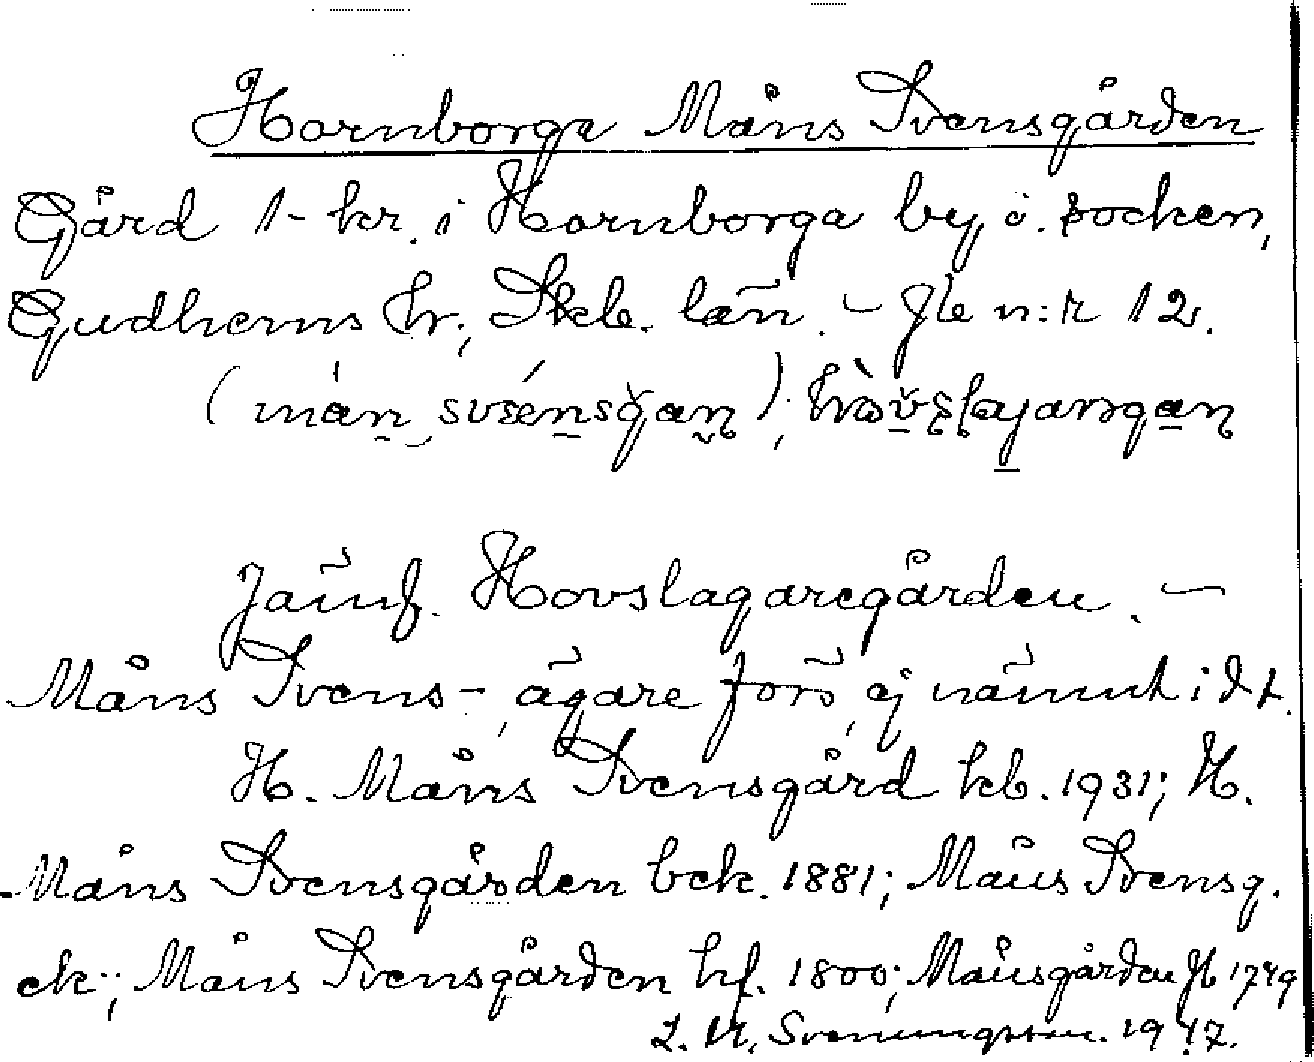 Hornborga Måns Svensgården
Gård 1 kr. i Hornborga by o. socken,
Gudhems hr, Skb. län. – Jb n:r 12.
Jämf. Hovslagaregården. –
Måns Svens-, ägare förs, ej nämnt i dt.
H. Måns Svensgård kb. 1931; H.
Måns Svensgården bek. 1881; Måns Svensg.
ek.; Måns Svensgården hf. 1800; Månsgården Jb 1749
Svenungsson. 1947.